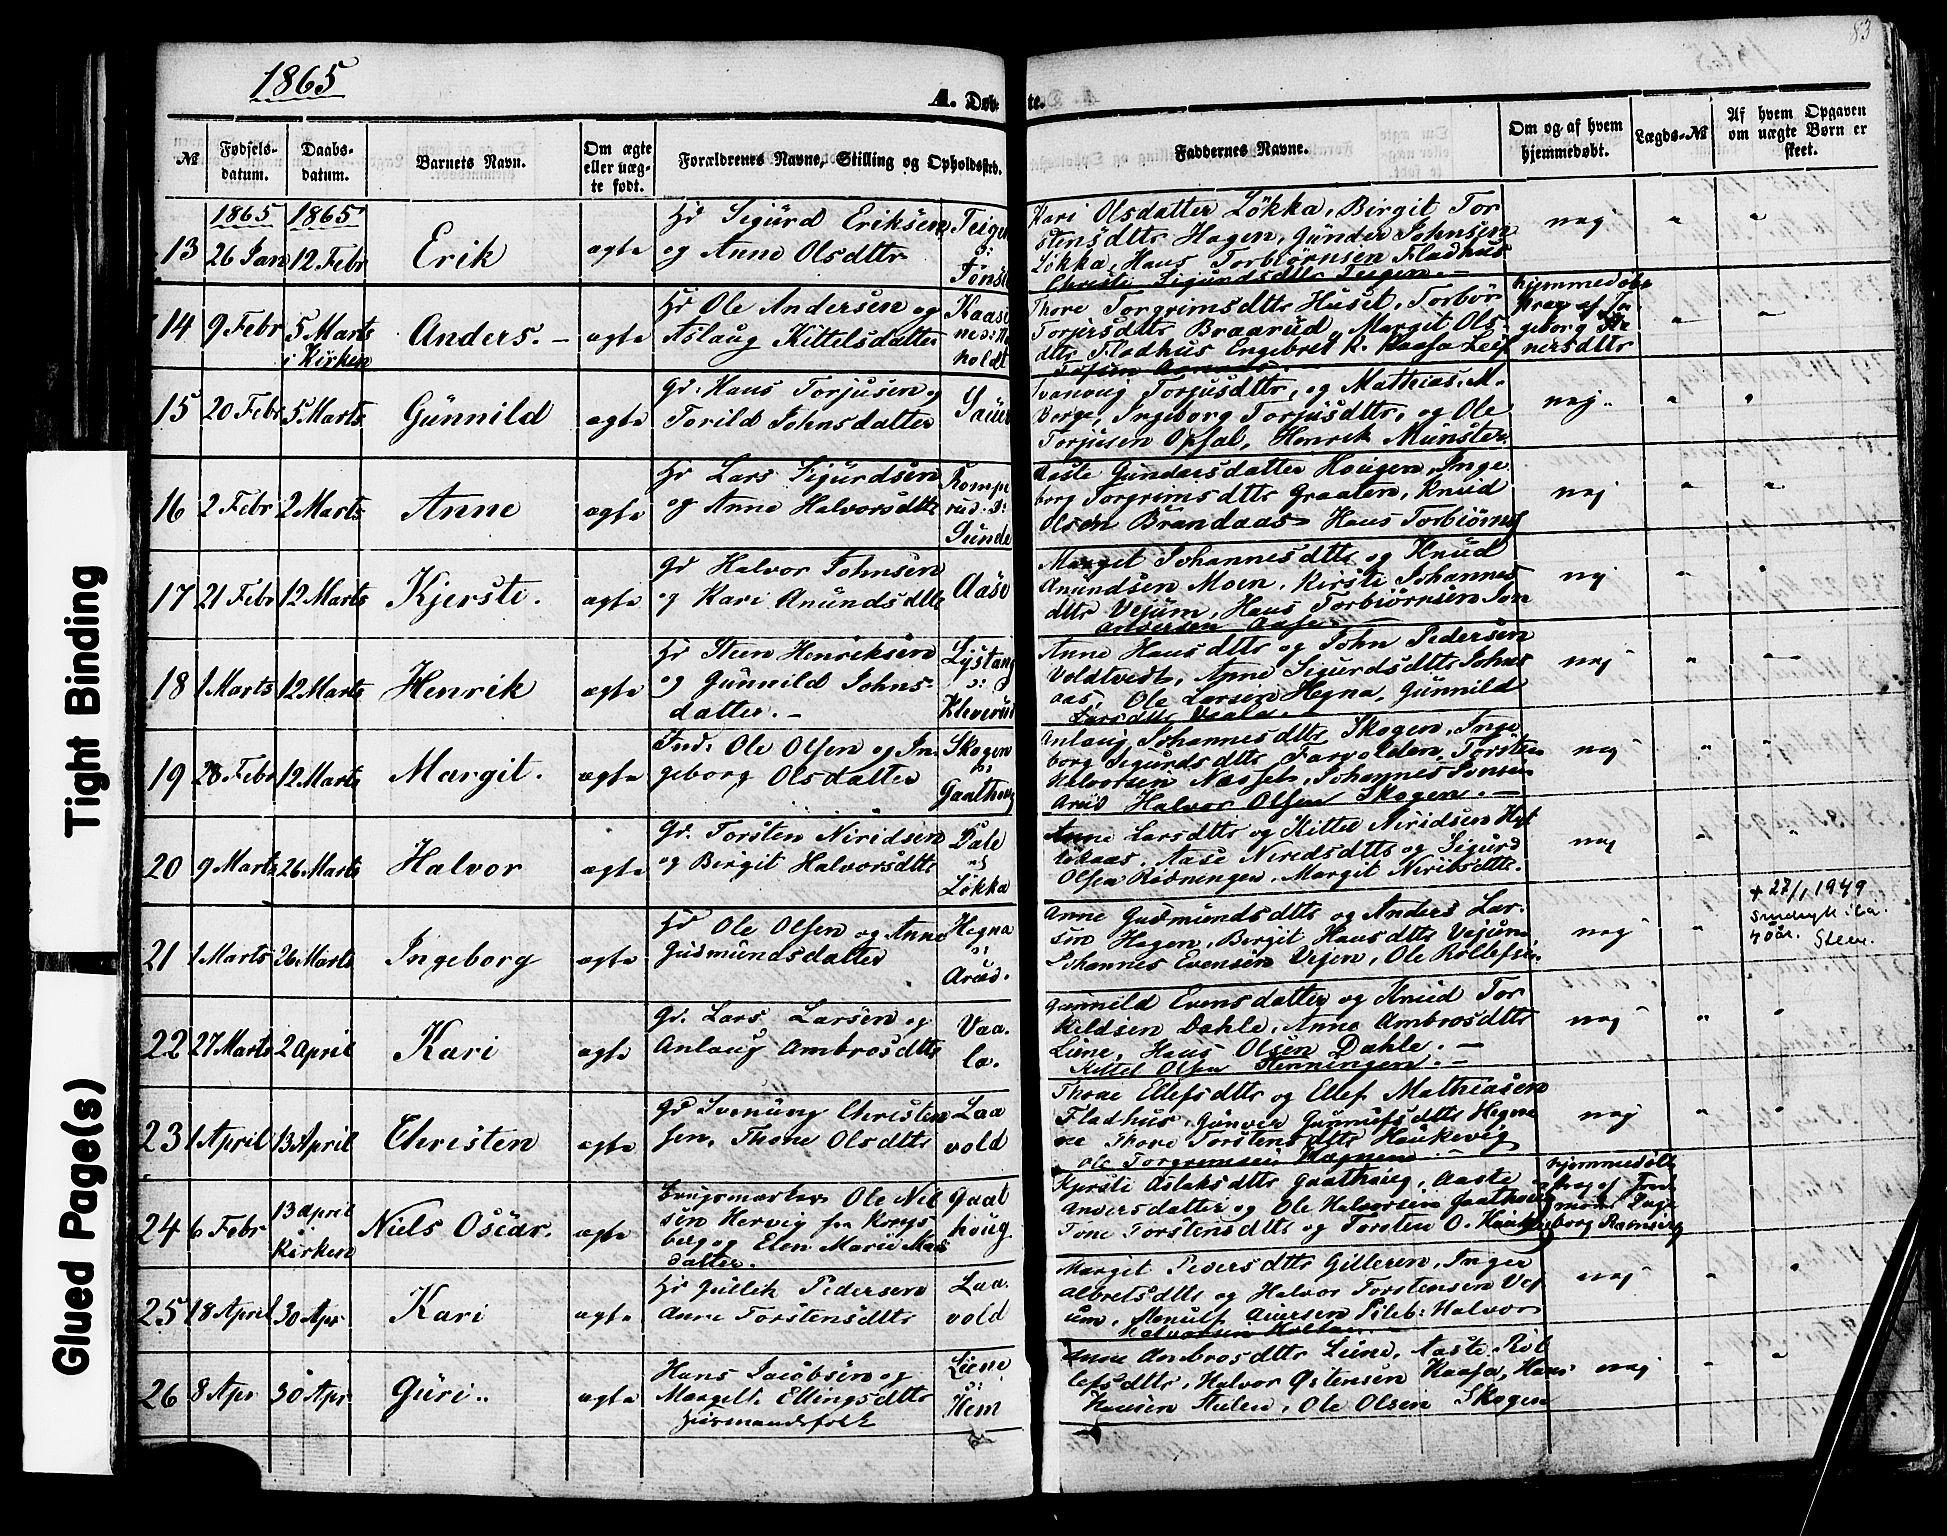 83
1865
A. Døbte.
№
Fødsels-datum.
Daabs-datum.
Barnets Navn.
Om ægte eller uæg-te født.
Forældrenes Navne, Stilling og Opholdssted.
Faddernes Navne.
Om og af hvem hjemmedøbt.
Lægds-№
Af hvem Opgaven om uægte Børn er skeet.
1865 1865
13 26 Jan 12 Febr Erik ægte
Sigurd Eriksen
og Anne Olsdttr
Kari Olsdatter Løkka, Birgit Tor
stensdttr Hagen, Gunder Johnsen
Løkka, Hans Torbiørnsen Fladhus
Christi Sigurdsdttr Teigen. —
nej " "
14 9 Febr 5 Marts i Kirken Anders. — ægte
Ole Andersen og
Aslaug Kittelsdatter
Thore Torgrimsdttr Huset, Torbør
Torjersdttr Braarud, Margit Ols-
dttr Fladhus Engebret K. Kaasa Leif
hjemmedøbt
" "
15 20 Febr 5 Marts Gunnild ægte
Gd: Hans Torjusen og
Torild Johnsdatter
Torjusdttr, og Mathias M.
Berge, Ingeborg Torjusdttr, og Ole
Torjusen Opsal, Henrik Munster.
nej " "
16 2 Febr 2 Marts Anne ægte
Lars Sigurdsen
og Anne Halvorsdttr
Aaste Gundersdatter Haugen, Inge
borg Torgrimsdttr Graaten, Knud
Olsen Brandaas Hans Torbiørns
nej " "
17 21 Febr 12 Marts Kjerste. ægte
Gd Halvor Johnsen
og Kari Anundsdttr
Aase
Margit Johannesdttr og Knud
Anundsen Moen, Kirsti Johannes
dttr Vejum, Hans Torbiørnsen Jon
Andersen Aase. —
nej " "
18 1 Marts 12 Marts Henrik ægte
Steen Henriksen
og Gunnild Johns-
datter. —
Lystang
Kleverud
Anne Hansdttr og John Pedersen
Voldtvedt, Anne Sigurdsdttr Johns
aas, Ole Larsen Hegna, Gunnild
Larsdttr Vaala.
nej " "
19 28 Febr 12 Marts Margit. ægte
Ind: Ole Olsen og In-
geborg Olsdatter
Skogen
Gaathoug
Anlaug Johannesdttr Skogen, Inge
borg Sigurdsdttr Farvolden, Torsten
Halvorsen Næsset, Johannes Jensen
Arud Halvor Olsen Skogen. —
nej " "
20 9 Marts 26 Marts Halvor ægte
Gd. Torsten Niridsen
og Birgit Halvorsdttr
Dale
Løkka
Anne Larsdttr og Kittel Niridsen
Aase Niredsdttr og Sigurd
Olsen Rødningen, Margit Niridsdttr.
nej " "
21 1 Marts 26 Marts Ingeborg ægte
Ole Olsen og Anne
Gudmundsdatter
Hegna
Arud.
Anne Gudmundsdttr og Anders Lar-
sen Hagen, Bergit Hansdttr Vejum
Johannes Evensen Vejen, Ole Rollefsen.
nej "
+ 27/1 1949
22 27 Marts 2 April Kari ægte
Gd. Lars Larsen og
Anlaug Ambrosdttr
Vaa-
la.
Gunnild Evensdatter og Knud Tor
kildsen Dahle, Anne Ambrosdttr
Liene, Hans Olsen Dahle. —
Kittel Olsen Henningen. —
nej " "
23 1 April 13 April Christen ægte
Gd Svenung Christen
sen, Thone Olsdttr
Laa
vold
Thone Ellefsdttr og Ellef Mathiasen
Fladhus, Gunvor Gunnufsdttr Hegna
Thore Torstensdttr Haukevig
Ole Torgrimsen
nej " "
24 6 Febr 13 April i Kirken Niels Oscar. ægte
Ole Niel
sen Hervig fra Kongs
berg og Elen Marie Mads
datter.
Gaat
houg
Kjersti Aslaksdttr Gaathoug, Aaste
Andersdatter og Ole Halvorsen Gaathoug
Tone Torstensdttr og Torsten O.
hjemmedøbt
25 18 April 30 Apr Kari ægte
Gullik Pedersen
Anne Torstensdttr
Laa-
vold
Margit Pedersdttr Gilleren, Inger
Albretsdttr og Halvor Torstensen Vej
um, Halvor
Halvorsen Holtan —
nej " "
26 8 Apr 30 Apr Guri.. ægte
Hans Jacobsen og
Margelt Ellingsdttr
Huusmandsfolk
Liene
Hem
Anne Ambrosdttr Liene, Aaste Rol
lefsdttr, Halvor Østensen Kaasa, Hans
Hansen Ole Olsen Skogen
nej " "
Tight Binding
Glued Page(s)